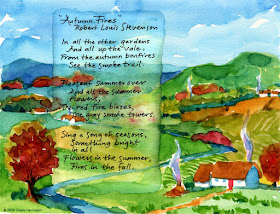 Autumn Fires
Robert Louis Stevenson
In all the other gardens
And all up the vale,
From the autumn bonfires
See the smoke trail.
Pleasant summer over
And all the summer
flowers,
The red fire blazes,
The grey smoke towers.
Sing a song of seasons,
Something bright
in all
Flowers in the summer,
Fires in the fall.